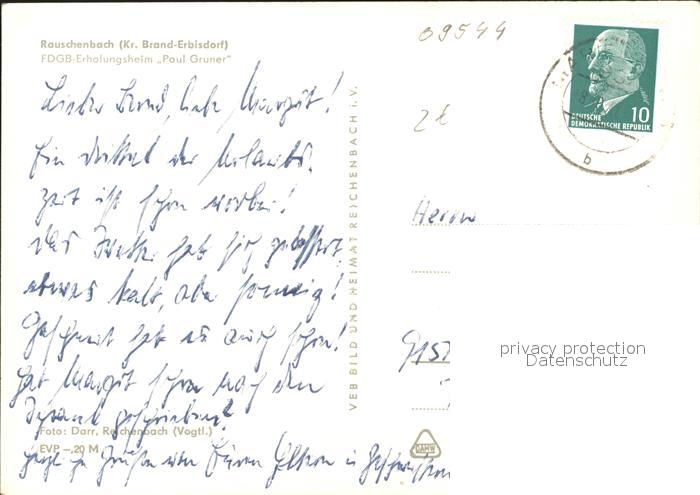 Rauschenbach (Kr. Brand-Erbisdorf)
FDGB-Erholungsheim „Paul Gruner"
09544
Lieber Bernd, liebe Margot!
Ein drittel der Urlaubs-
zeit ist schon vorbei!
Das Wetter hat sich gebessert,
etwas kalt, aber sonnig!
Geschneit hat es auch schon!
Hat Margot schon nach den
geschrieben?
Herzliche Grüße von Euren Eltern u. Geschwistern
Foto: Darr, Reichenbach (Vogtl.)
EVP –,20 M
VEB BILD UND HEIMAT REICHENBACH i. V.
10
DEUTSCHE
DEMOKRATISCHE REPUBLIK
b
Herrn
9157
privacy protection
Datenschutz
DAMW